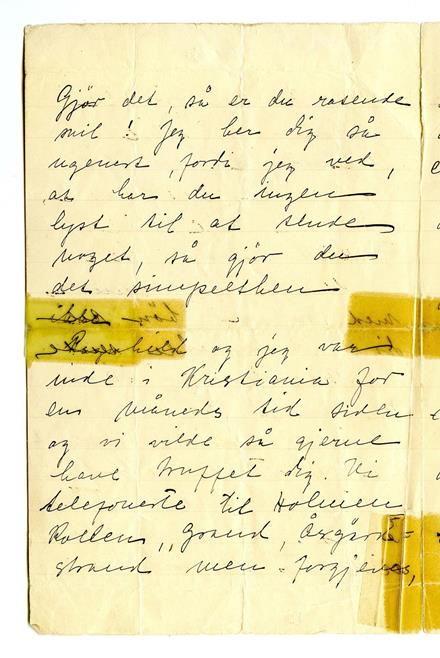 Gjør det, så er du rasende
snil! Jeg ber dig så
ugenert, fordi jeg ved,
at har du ingen
lyst til at sende
noget, så gjør du
det simpelthen
ikke
Ragnhild og jeg var
inde i Kristiania for
en måneds tid siden
og vi vilde så gjerne
have truffet dig. Vi
telefonerte til Holmen
Kollen, Grand, Åsgård=
strand men forgjeves,